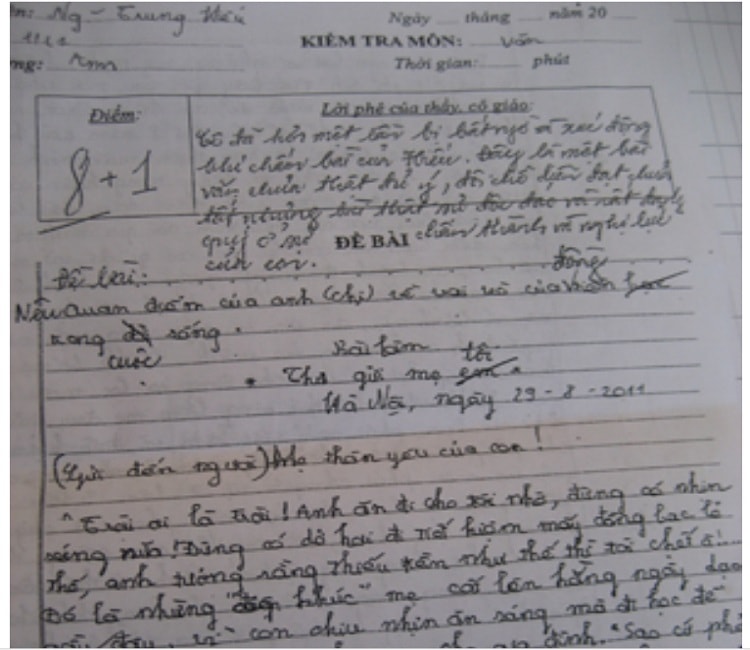 ên: Ng - Trung Hiếu
Ngày tháng năm 20
KIỂM TRA MÔN: Văn
Thời gian: phút
Điểm:
8 + 1
Lời phê của thầy, cô giáo:
Cô đã hơn một lần bị bất ngờ và xúc động
khi chấm bài của Hiếu. Đây là một bài
văn chưa thật hết ý, đôi chỗ diễn đạt chưa
tốt nhưng bài thật sự độc đáo và rất đáng
quý ở sự chân thành và nghị lực
của con.
ĐỀ BÀI
Đề bài:
Nêu quan điểm của anh (chị) về vai trò của đồng
trong cuộc sống.
Bài làm
Thư gửi mẹ tôi
Hà Nội, ngày 29 - 8 - 2011
(Gửi đến người) Mẹ thân yêu của con!
"Trời ơi là trời! Anh ăn đi cho tôi nhờ, đừng có nhịn
sáng nữa! Đừng có dở hơi đi tiết kiệm mấy đồng bạc lẻ
thế, anh tưởng rằng thiếu tiền như thế thì tôi chết à!...
Đó là những khúc" mẹ cất lên hằng ngày dạo
vì con chịu nhịn ăn sáng mà đi học để
đình. "Sao cứ phả